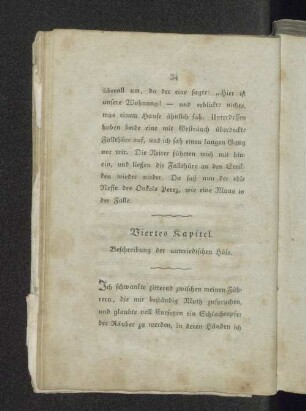 34
überall um, da der eine sagte: „Hier ist
unsere Wohnung! — und erblickte nichts,
was einem Hause ähnlich sah. Unterdessen
hoben beide eine mit Gesträuch überdeckte
Fallthüre auf, und ich sah einen langen Gang
vor mir. Die Reiter führten mich mit hin-
ein, und ließen die Fallthüre an den
den wieder nieder. Da saß nun der edle
Neffe des Onkels Perez, wie eine Maus in
der Falle.
Viertes Kapitel.
Beschreibung der unterirdischen Höle.
Ich schwankte zitternd zwischen meinen Füh-
rern, die mir beständig Muth zusprachen,
und glaubte voll Entsetzen ein Schlachtopfer
der Räuber zu werden, in deren Händen ich